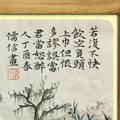 若復不快
飲空負頭
上巾但恨
多謬誤
君當恕醉
人丁酉春
儒信畫